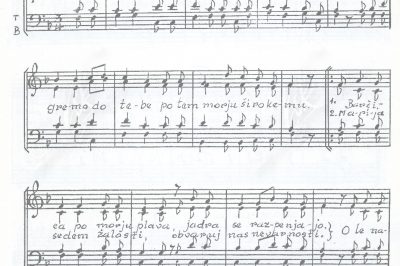 T
B
gremo do te-be po tem morju široke-mu.
1. Barči-
2. Ma-ri-ja
ca po morju plava, jadra se raz-penja-jo.
sedem žalosti, obvaruj nas nevarnosti. } O le na-